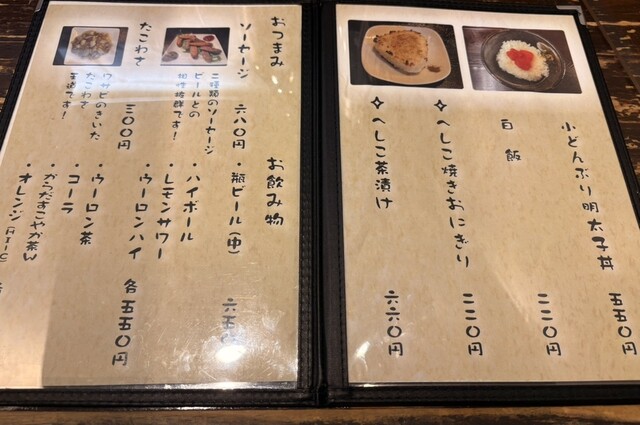 小どんぶり明太子丼 五五〇円
白飯 二二〇円
✧へしこ焼きおにぎり 二二〇円
✧へしこ茶漬け 六六〇円
おつまみ
ソーセージ 六八〇円
二種類のソーセージ
ビールとの
相性抜群です！
たこわさ 三〇〇円
ワサビのきいた
たこわさ
王道です！
お飲み物
・瓶ビール(中) 六五〇
・ハイボール
・レモンサワー
・ウーロンハイ 各五五〇円
・ウーロン茶
・コーラ
・からだすこやか茶W
・オレンジ